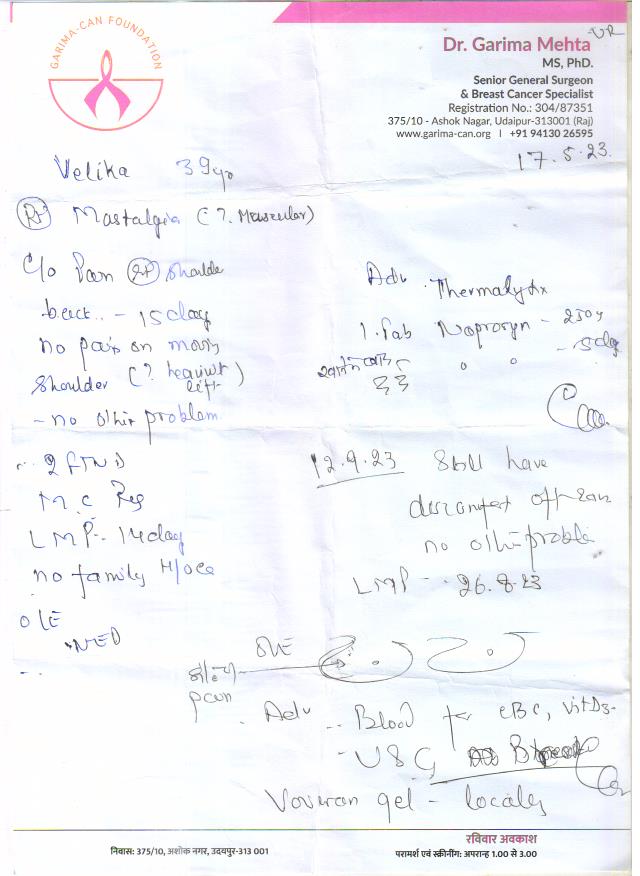 GARIMA-CAN FOUNDATION
UR
Dr. Garima Mehta
MS, PhD.
Senior General Surgeon
& Breast Cancer Specialist
Registration No.: 304/87351
375/10 - Ashok Nagar, Udaipur-313001 (Raj)
www.garima-can.org | +91 94130 26595
17.5.23
Velika 39yo
Mastalgia (?. Muscular)
C/o Pain Rt Shoulde
- 15 day
no pain on
Shoulder (?
- no other problem
2 FTND
M C Reg
LMP - 14 day
no family H/o ca
O/E
NED
Adv. Thermalytx
1. Tab Noprosyn - 250
12.9.23 Still have
no other proble
LMP - 26.8.23
O/E
pain
Adv - Blood CBC, Vit D3
- USG
Voveran gel - locally
रविवार अवकाश
निवास: 375/10, अशोक नगर, उदयपुर-313 001
परामर्श एवं स्क्रीनींग: अपरान्ह 1.00 से 3.00